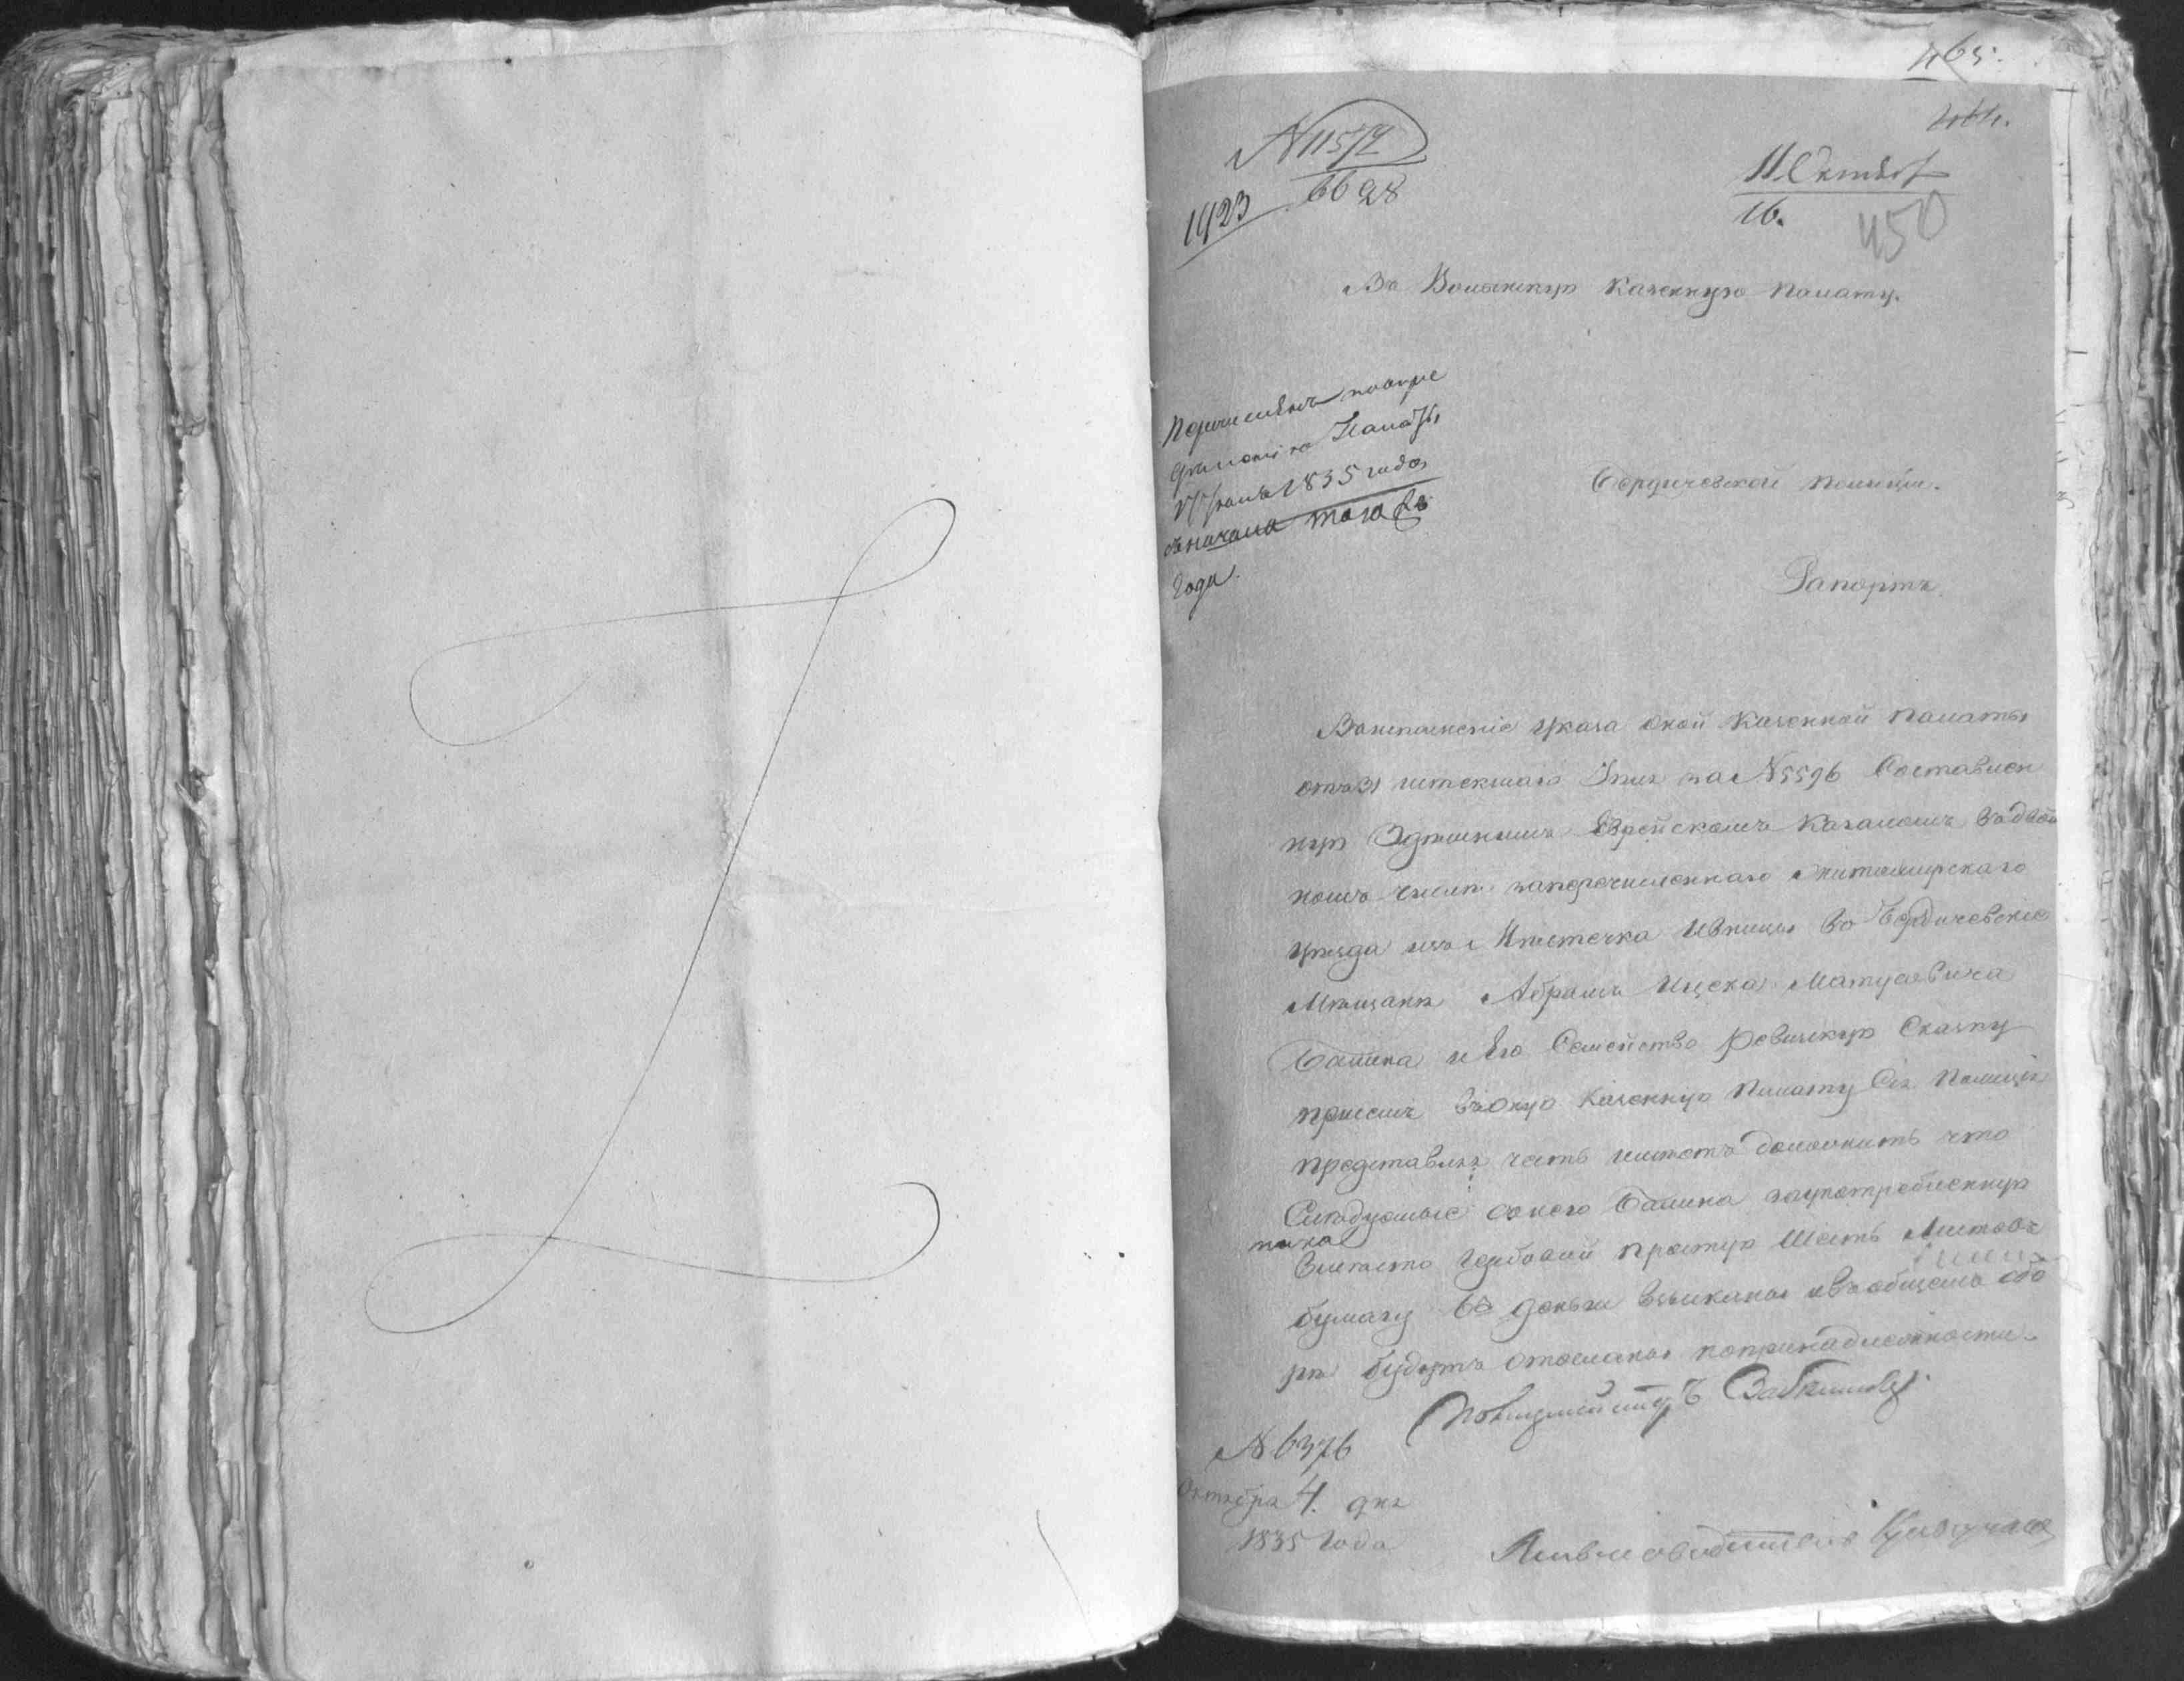 465.
N 11572
6628
1423
11 Октября
16.
450
Въ Волынскую Казенную Палату.
Перечисленъ по опре
деленію Палаты
1835 года
съ начала того же
года.
Бердичевской Полиціи.
Рапортъ.
Воисполненіе указа оной Казенной Палаты
отъ 31 истекшаго за N 5596 Составлен
ную Еврейскомъ Кагаломъ Вдвой
номъ числѣ наперечисленнаго Житомирскаго
уѣзда изъ Мѣстечка Ивницы Во Бердичевскіе
Мѣщане Абрама Ицска Матусовича
Башина и Его Семейство Ревизкую Сказку
при семъ Въоную Казенную Палату Сія Полиція
представляя честь имѣетъ доложить что
Слѣдуемые сонего Башина заупотребленную
Вмѣсто гербовой простую Шесть Листовъ
бумагу деньги взысканы ивъобщемъ сбо
рѣ будутъ отосланы попринадлежности.
Полицмейстеръ
N 6376
Октября 4. дня
1835 Года